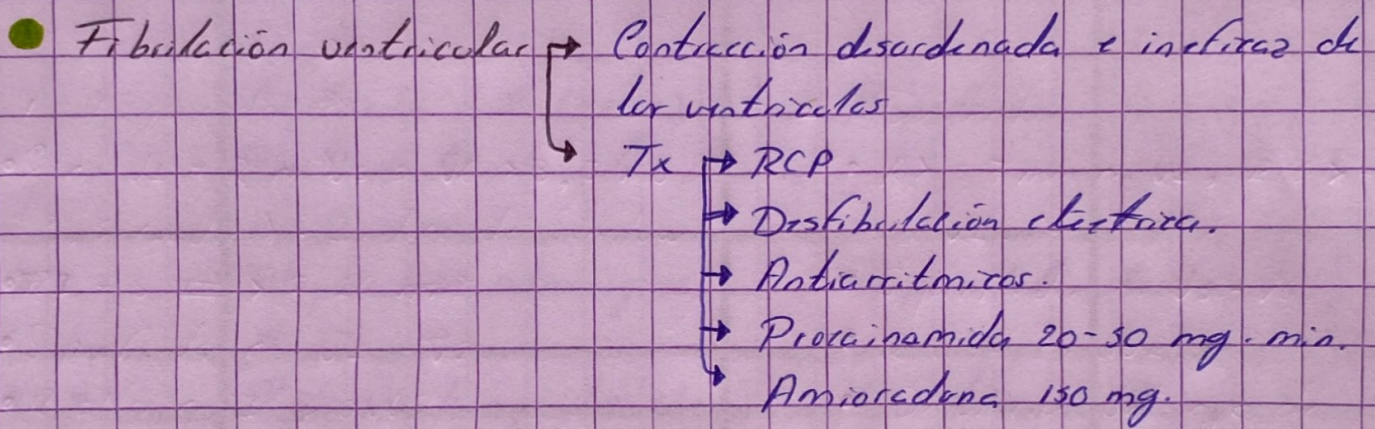 Fibrilación ventricular → Contracción desordenada e ineficaz de
los ventriculos
Tx → RCP
→ Desfibrilación electrica.
→ Antiarritmicos.
→ Procainamida 20-50 mg. min.
→ Amioradona 150 mg.